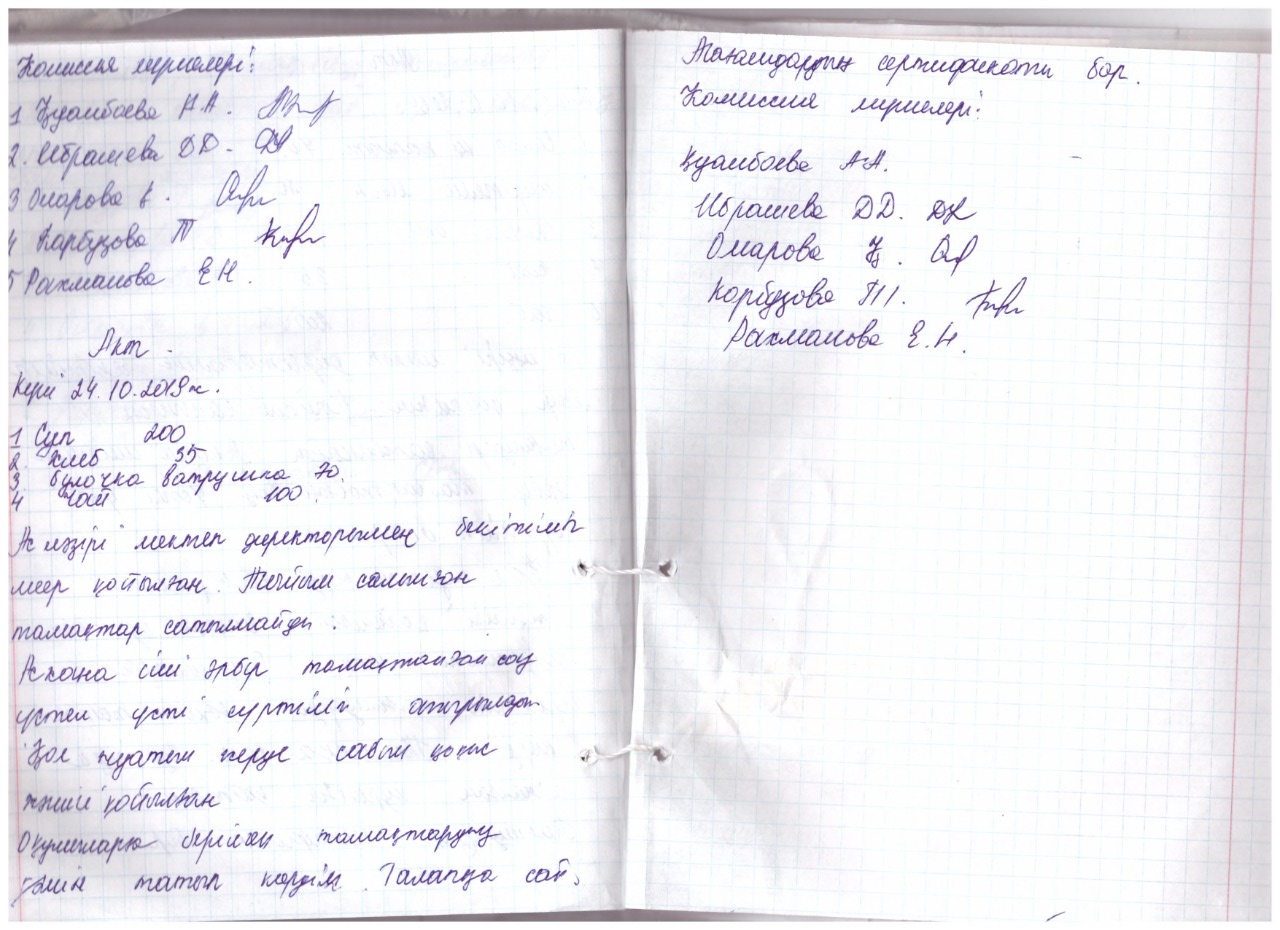 Комиссия мүшелері:
1 Қуанбаева А.А.
2. Ибрашева Д.Д.
3 Омарова
4 Карбузова Т
5 Рахманова Е.Н.
Акт
Күні 24.10.2019ж.
1 Суп 200
2. хлеб 35
3 булочка ватрушка 70.
4 чай 100.
Ас мәзірі мектеп директорымен бекітіліп
мөр қойылған. Тыйым салынған
тамақтар сатылмайды.
Асхана іші әрбір тамақтанған соң
үстел үсті сүртіліп отырылады
Қол жуатын жерде сабын
қойылған
Оқушыларға берілген тамақтардың
дәмін татып көрдім. Талапқа сай,
Тағамдардың сертификаты бар.
Комиссия мүшелері:
Қуанбаева А.А.
Ибрашева Д.Д.
Омарова Қ.
Карбузова Т
Рахманова Е.Н.